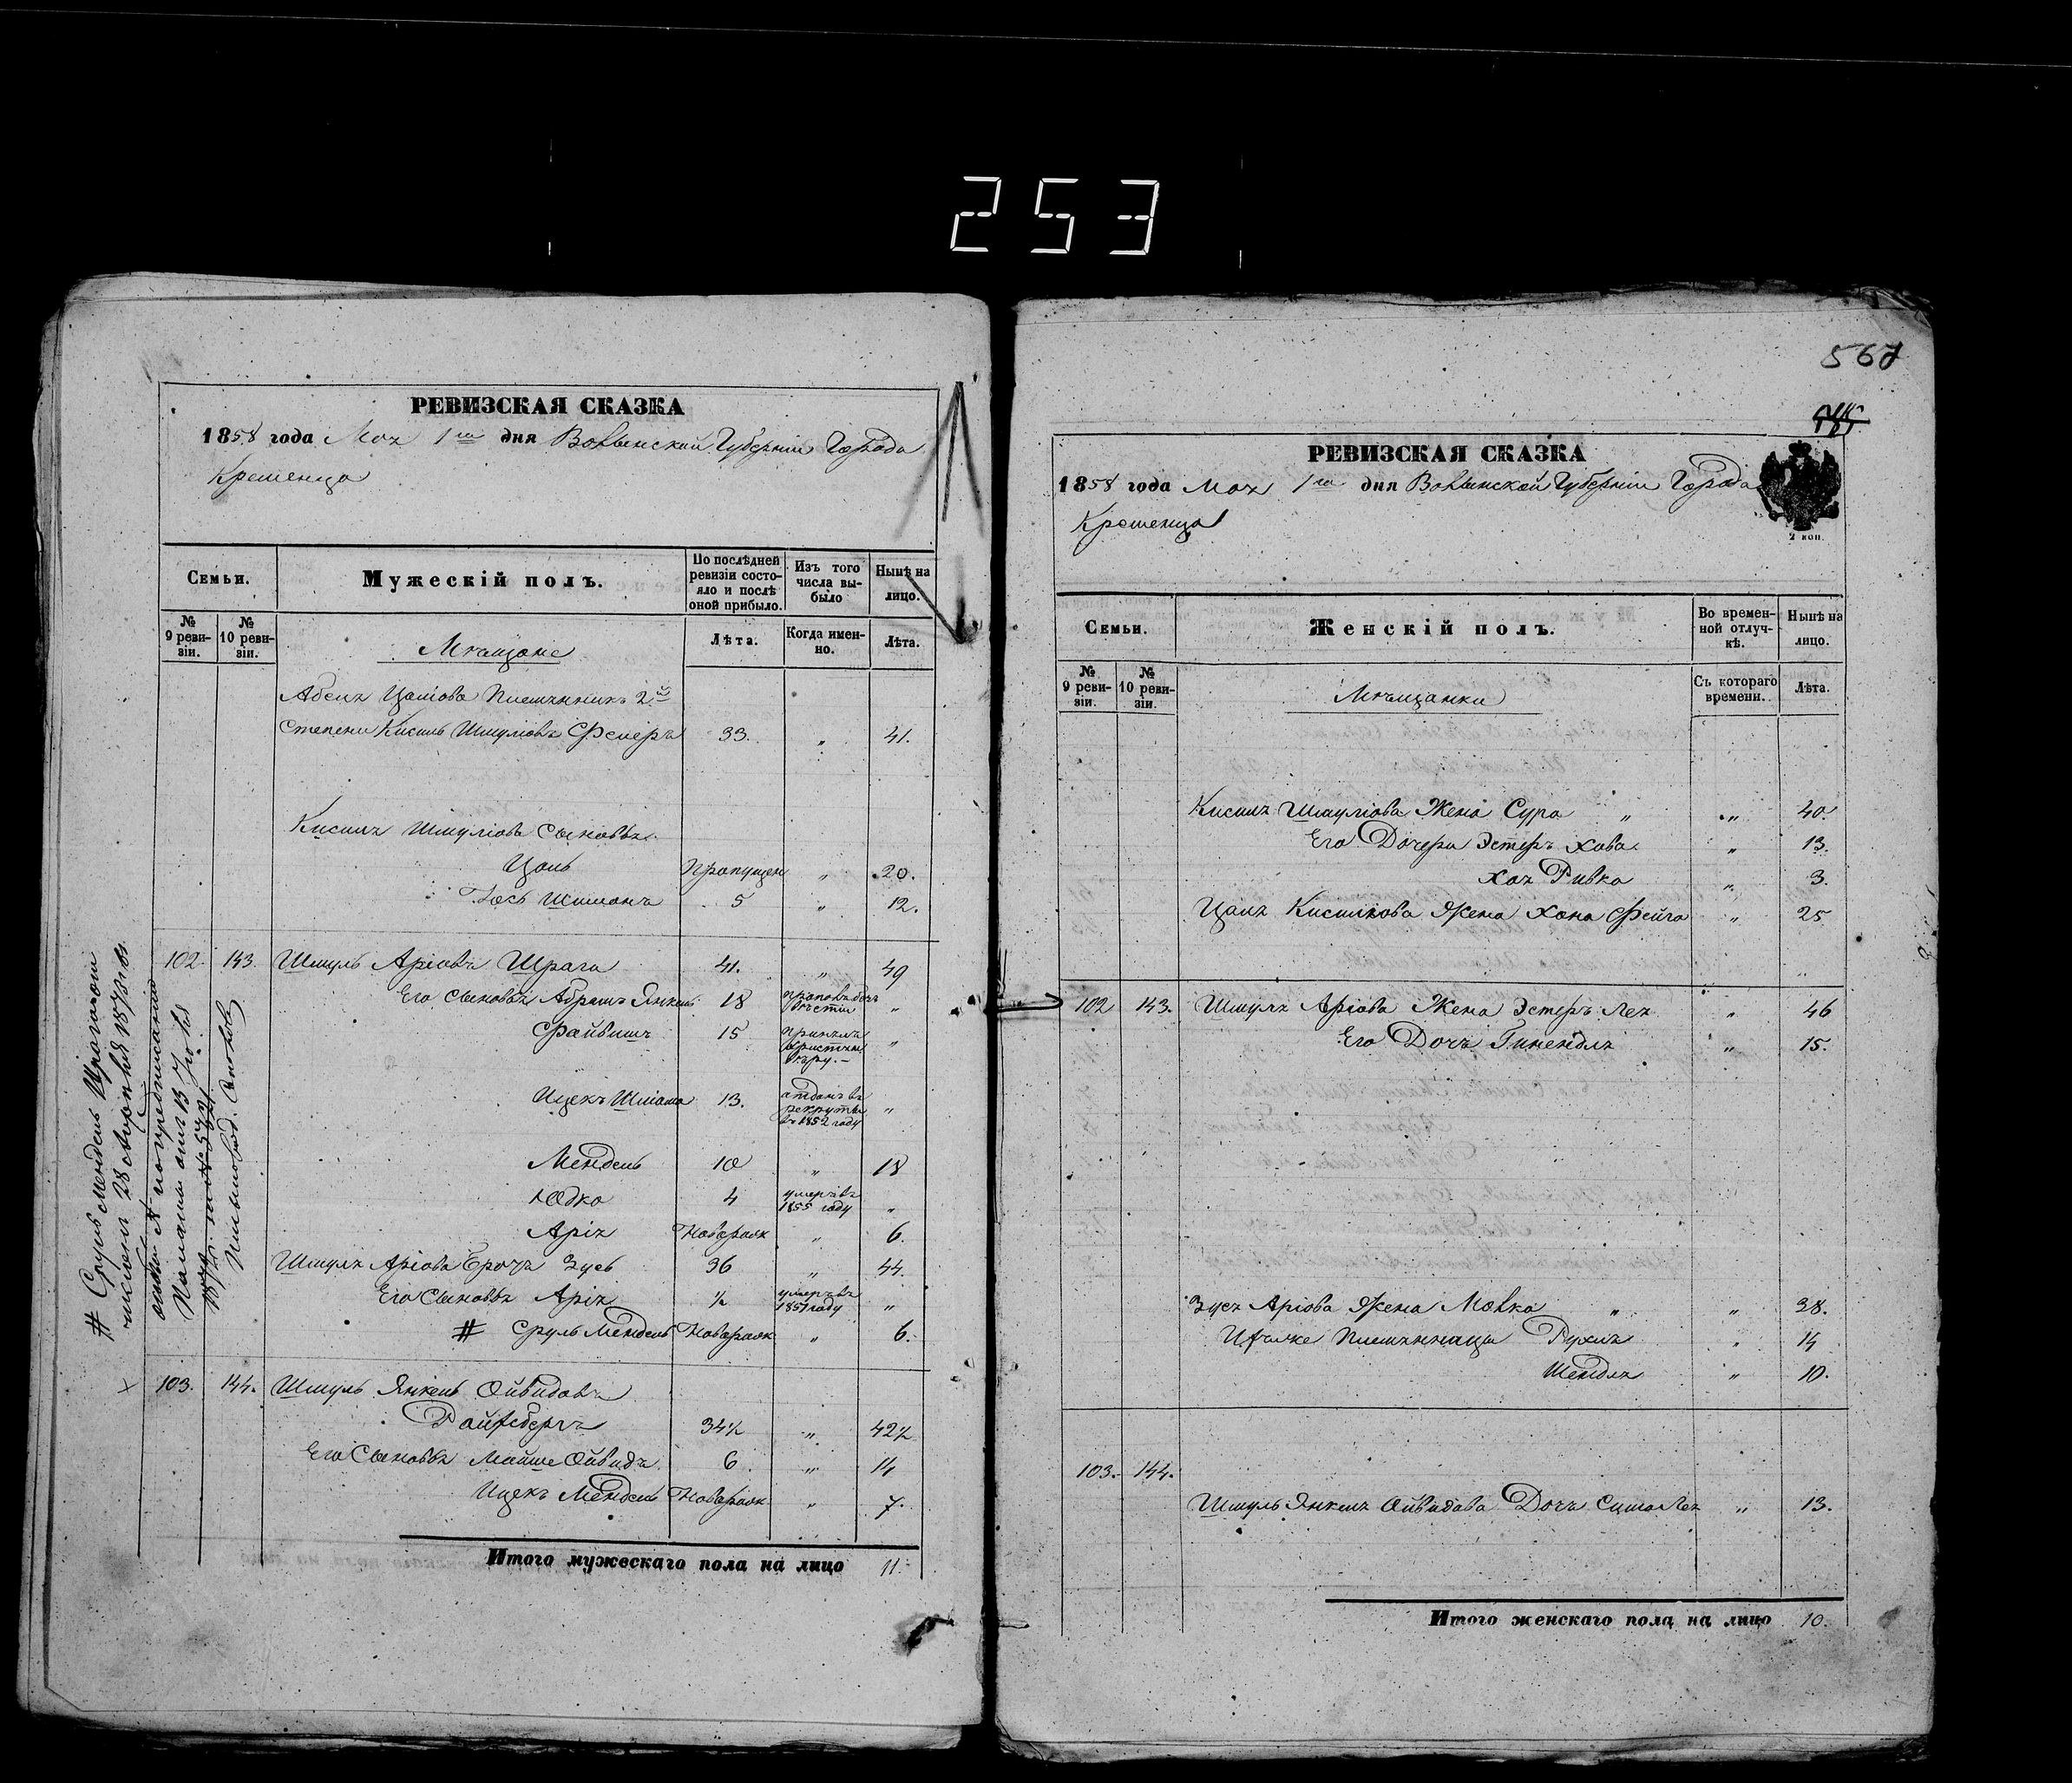 253
РЕВИЗСКАЯ СКАЗКА
1858 года Мая 1го дня Волынской Губерніи Города
Кременца
Семьи.
Мужескій полъ.
По послѣдней ревизіи состо-яло и послѣ оной прибыло.
Изъ того числа вы-было
Нынѣ на лицо.
№ 9 реви-зіи.
№ 10 реви-зіи.
Мѣщане
Лѣта.
Когда имен-но.
Лѣта.
Абеля Цаліова Племянникъ 2й
Степени Кисиль Шмуліовъ Фейеръ 33. „ 41.
Кисиля Шмуліова Сыновья
Цаль Пропущен „ 20.
Іось Шимонъ 5 „ 12.
102. 143. Шмуль Аріовъ Шрага 41. „ 49
Его Сыновья Абрамъ Янкель 18 „
Файвишъ 15 принялъ христіан вѣру. „
Ицекъ Шліома 13. отданъ въ рекруты въ 1852 году „
Мендель 10 „ 18
Юдко 4 умеръ въ 1855 году „
Арія Новорож „ 6.
Шмуля Аріова Братъ Зусь 36 „ 44.
Его Сыновья Арія ½ умеръ въ 1851 году „
# Сруль Мендель Новорож „ 6.
103. 144. Шмуль Янкель Ойвидовъ
Райзбергъ 34½ „ 42½
Его Сыновья Мойше Ойвидъ 6 „ 14
Ицекъ Мендель Новорож „ 7.
Итого мужескаго пола на лицо 11.
# Сруль Мендель Шрага
567
РЕВИЗСКАЯ СКАЗКА
1858 года Мая 1го дня Волынской Губерніи Города
Кременца
2 коп.
Семьи.
Женскій полъ.
Во времен-ной отлуч-кѣ.
Нынѣ на лицо.
№ 9 реви-зіи.
№ 10 реви-зіи.
Мѣщанки
Съ котораго времени.
Лѣта.
Кисиля Шмуліова Жена Сура „ „ 40.
Его Дочери Эстеръ Хава „ 13.
Хая Ривка „ 3.
Цаля Кисилкова Жена Хана Фейга „ 25
102 143. Шмуля Аріова Жена Эстеръ Лея „ 46
Его Дочь Гинендля „ 15.
Зуся Аріова Жена Молка „ „ 38.
Племянницы Рухля „ 14
Шендля „ 10.
103. 144.
Шмуль Янкеля Ойвидова Дочь Сима Лея „ 13.
Итого женскаго пола на лицо 10.